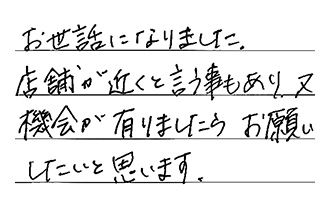 お世話になりました.
店舗が近くと言う事もあり、又
機会が有りましたら お願い
したいと思います.